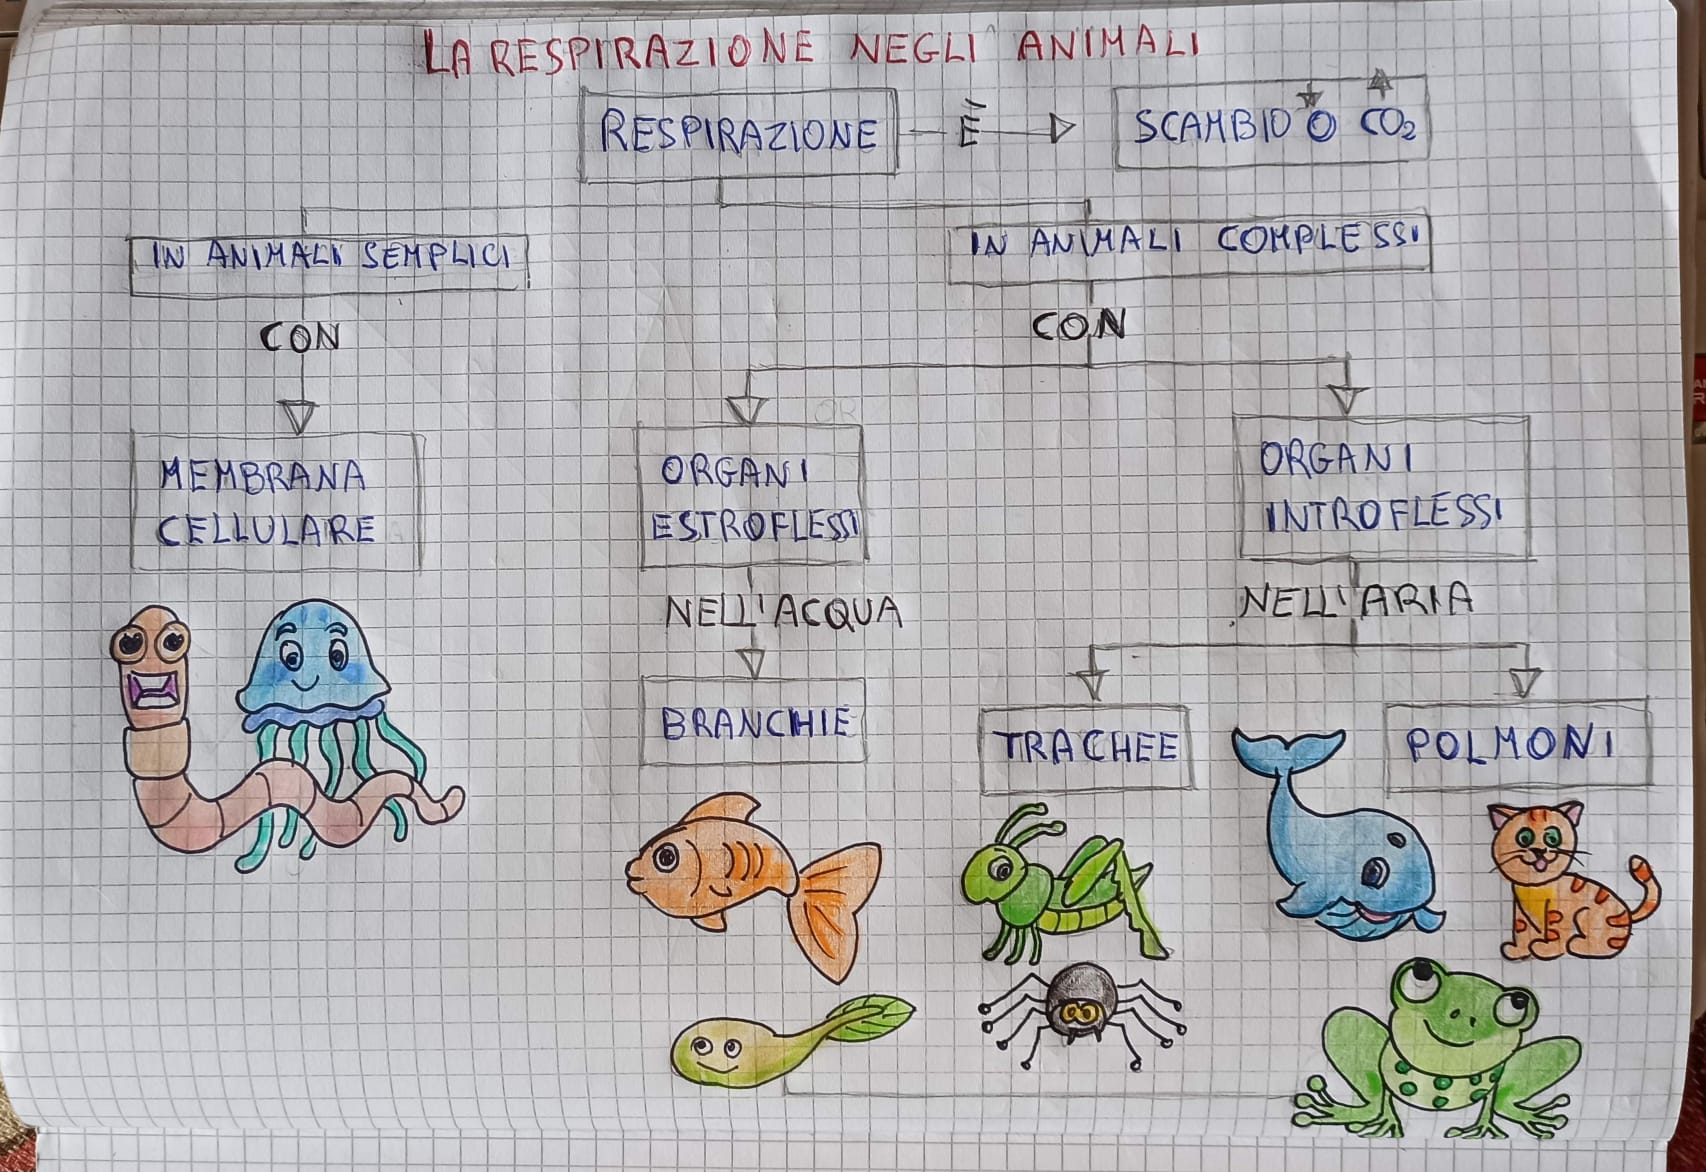 LA RESPIRAZIONE NEGLI ANIMALI
RESPIRAZIONE È SCAMBIO O CO2
IN ANIMALI SEMPLICI
IN ANIMALI COMPLESSI
CON
CON
MEMBRANA
CELLULARE
ORGANI
ESTROFLESSI
ORGANI
INTROFLESSI
NELL'ACQUA
NELL'ARIA
BRANCHIE
TRACHEE
POLMONI